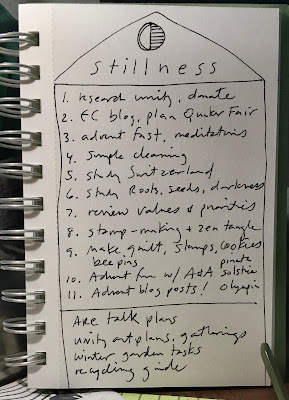 stillness
1. research unity, donate
2. EC blog, plan Quaker Fair
3. advent fast, meditations
4. Simple cleaning
5. study Switzerland
6. study Roots, seeds, darkness
7. review values & priorities
8. stamp-making & zen tangle
9. Make quilt, stamps, cookies
beeping pirate
10. Advent fun w/ A&A solstice
11. Advent blog posts! Olympia
ARE talk plans
unity art plans, gatherings
winter garden tasks
recycling guide